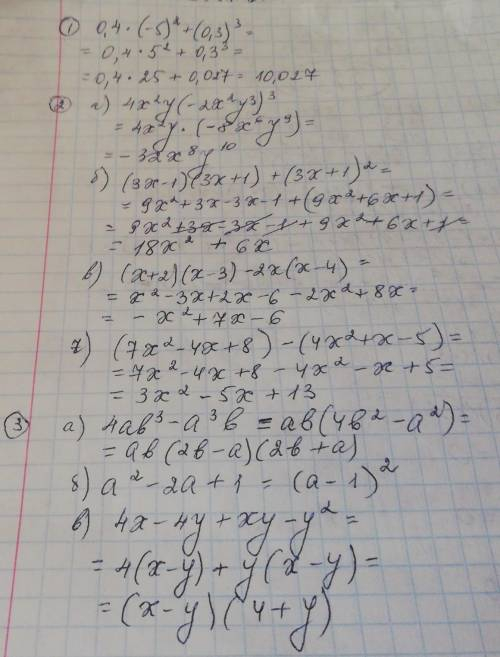 ① 0,4 · (-5)² + (0,3)³ =
= 0,4 · 5² + 0,3³ =
= 0,4 · 25 + 0,027 = 10,027
② а) 4x²y(-2x²y³)³
= 4x²y · (-8x⁶y⁹) =
= -32x⁸y¹⁰
б) (3x-1)(3x+1) + (3x+1)² =
= 9x²+3x-3x-1+(9x²+6x+1) =
= 9x²+3x-3x-1+9x²+6x+1=
= 18x² + 6x
в) (x+2)(x-3)-2x(x-4) =
= x²-3x+2x-6-2x²+8x=
= -x²+7x-6
г) (7x²-4x+8)-(4x²+x-5)=
=7x²-4x+8-4x²-x+5=
= 3x²-5x+13
③ а) 4ab³-a³b = ab(4b²-a²)=
= ab(2b-a)(2b+a)
б) a²-2a+1 = (a-1)²
в) 4x-4y+xy-y² =
= 4(x-y)+y(x-y)=
= (x-y)(4+y)